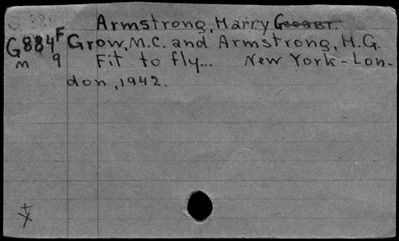 Armstrong, Harry George.
G884F Grow, M.C. and Armstrong, H.G.
m 9 Fit to fly... New York-Lon-
don, 1942.